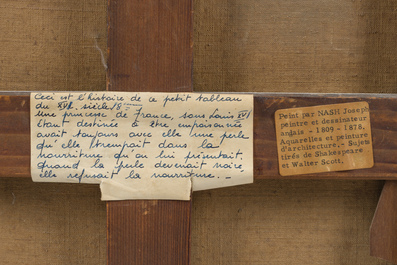 Ceci est l'histoire de ce petit tableau
du XVI. siècle/8
Une princesse de France, sous Louis XVI
étant destinée à être empoisonnée
avait toujours avec elle une perle
qu'elle trempait dans la
nourriture qu'on lui présentait.
Quand la perle devenait noire,
elle refusait la nourriture. _
Peint par NASH Joseph
peintre et dessinateur
anglais - 1809 - 1878,
Aquarelles et peinture
d'architecture.- Sujets
tirés de Shakespeare
et Walter Scott.